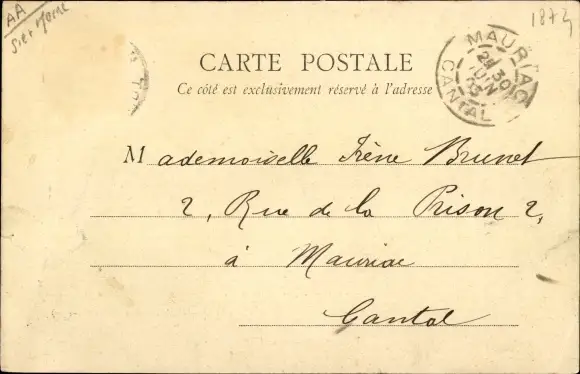 AA
1873
MAURIAC
CANTAL
CARTE POSTALE
Ce côté est exclusivement réservé à l'adresse
Mademoiselle Irène Brunet
2, Rue de la Prison 2,
à Mauriac
Cantal